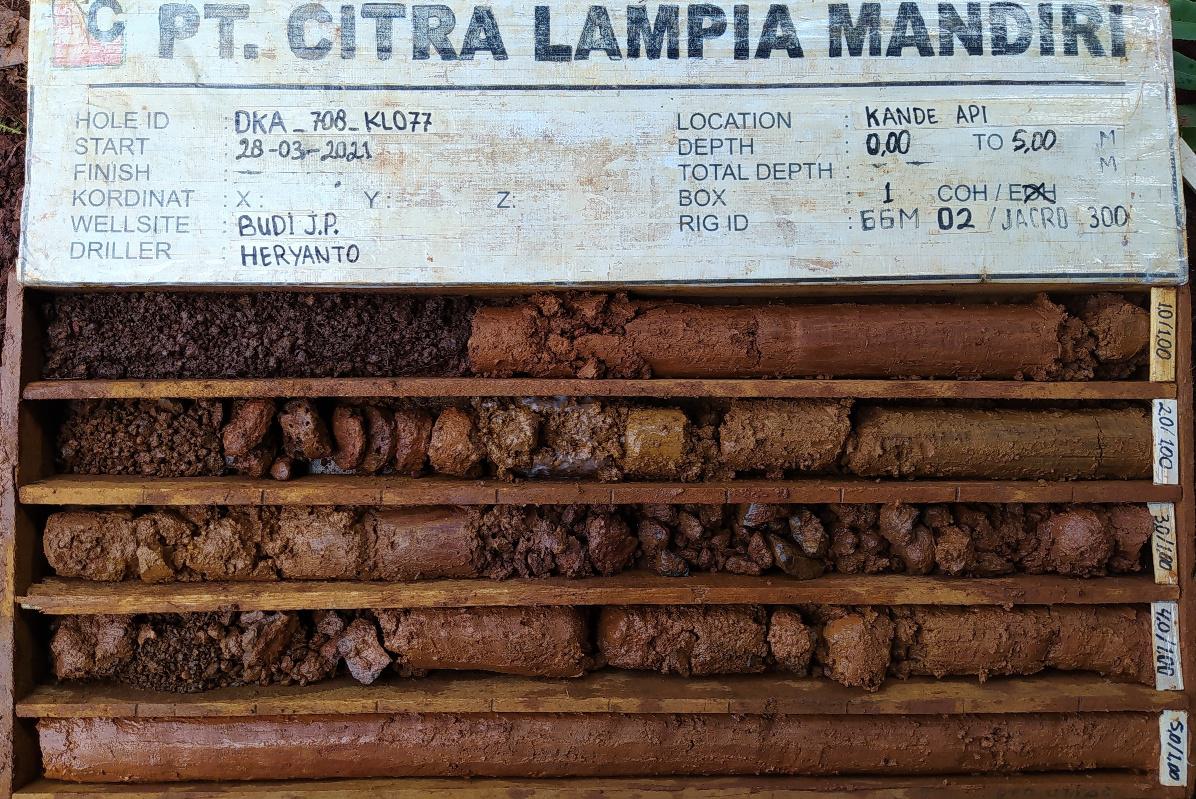 C PT. CITRA LAMPIA MANDIRI
HOLE ID : DKA_708_KL077
START : 28-03-2021
FINISH : —
KORDINAT : X : Y : Z:
WELLSITE : BUDI J.P.
DRILLER : HERYANTO
LOCATION : KANDE API
DEPTH : 0,00 TO 5,00 M
TOTAL DEPTH : — — M
BOX : 1 COH / EXH
RIG ID : 66M 02 / JACRO 300
1,0/1,00
2,0/1,00
3,0/1,00
4,0/1,00
5,0/1,00